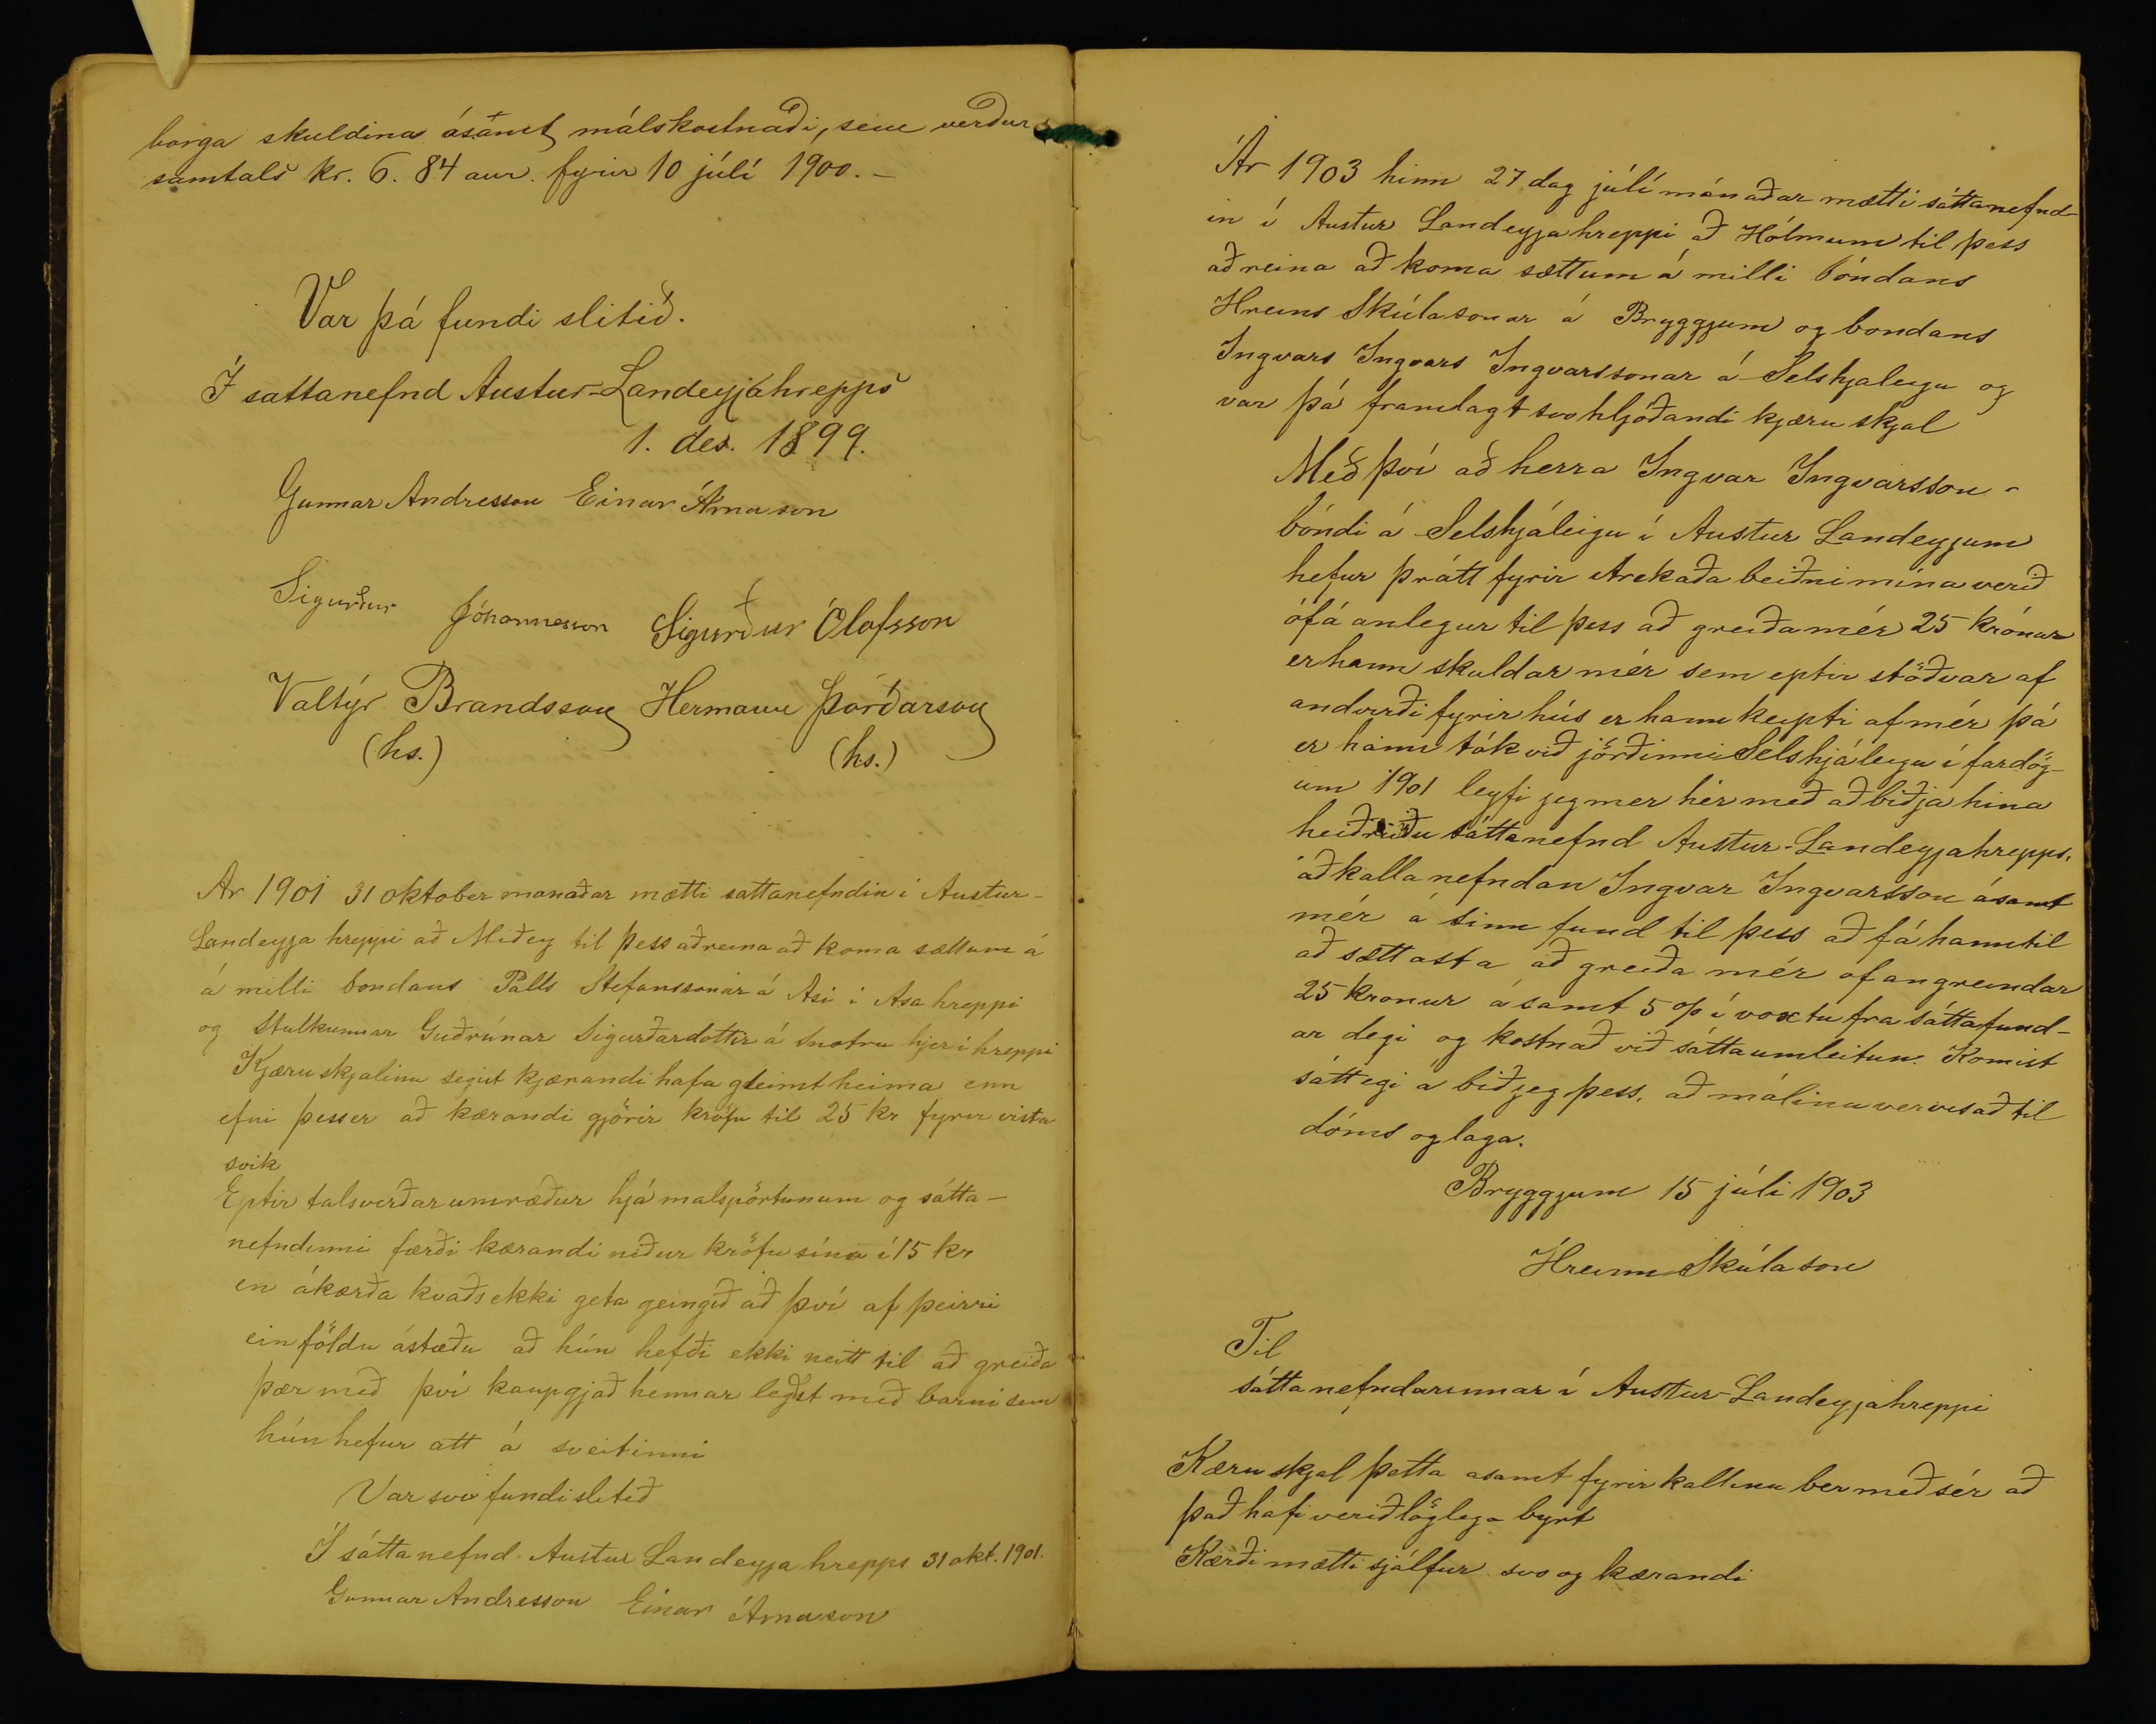 borga skuldina ásamt málskostnaði, sem verður
samtals kr. 6. 84 aur. fyrir 10 júlí 1900. –
Var þá fundi slitið.
Í sattanefnd Austur-Landeyjahrepps
1. des. 1899.
Gunnar Andresson Einar Árnason
Sigurður Jóhannesson Sigurður Ólafsson
Valtýr Brandsson Hermann Þórðarson
(hs.) (hs.)
Ar 1901 31 oktober manaðar mætti sattanefndin i Austur-
Landeyja hreppi að Miðey til þess að reina að koma sættum á
á milli bondans Páls Stefanssonar á Asi i Asa hreppi
og Stulkunnar Guðrúnar Sigurðardottir á Snotru hjer i hreppi
Kjæru skjalinu segist kjærandi hafa gleimt heima enn
efni þess er að kærandi gjörir kröfu til 25 kr fyrir vista
svik
Eptir talsverðar umræður hjá malspörtunum og sátta-
nefndinni færði kærandi niður kröfu sína í 15 kr
en ákærða kvaðs ekki geta geingið að því af þeirri
einföldu ástæðu að hún hefði ekki neitt til að greiða
þar með því kaupgjað hennar legðst með barni sem
hún hefur att á sveitinni
Var svo fundi slitið
Í sáttanefnd Austur Landeyja hrepps 31 okt. 1901.
Gunnar Andresson Einar Árnason
Ár 1903 hinn 27 dag júlí mánaðar mætti sáttanefnd-
in í Austur Landeyjahreppi að Hólmum til þess
að reina að koma sættum á milli bóndans
Hreins Skúlasonar á Bryggjum og bondans
Ingvars Ingvars Ingvarssonar á Selshjaleigu og
var þá framlagt svo hljóðandi kjæru skjal
Með því að herra Ingvar Ingvarsson -
bóndi á Selshjáleigu í Austur Landeyjum
hefur þrátt fyrir itrekaða beiðni mína verið
ófáanlegur til þess að greiða mér 25 krónur
er hann skuldar mér sem eptir stöðvar af
andvirði fyrir hús er hann keipti af mér þá
er hann tók við jörðinni Selshjáleigu í fardög-
um 1901 leyfi jeg mer hér með að biðja hina
heiðruðu sáttanefnd Austur-Landeyjahrepps,
að kalla nefndan Ingvar Ingvarsson ásamt
mér á sinn fund til þess að fá hann til
að sættast a að greiða mér ofangreindar
25 kronur ásamt 5 % í voxtu fra sáttafund-
ar degi og kostnað við sáttaumleitun. Komist
sátt egi a bið jeg þess, að málinu ver visað til
dóms og laga.
Bryggjum 15 júli 1903
Hreinn Skúlason
Til
sáttanefndarinnar í Austur-Landeyjahreppi
Kæru skjal þetta asamt fyrirkallinu ber með sér að
það hafi verið löglega byrt
Kærði mætti sjálfur svo og kærandi